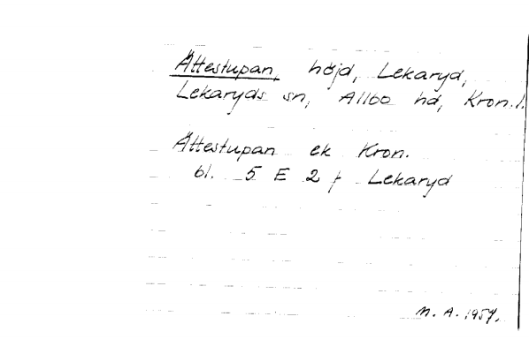 Ättestupan, höjd, Lekaryd,
Lekaryds sn, Allbo hd, Kron.l.
Ättestupan ek Kron.
bl. 5 E 2 f Lekaryd
M. A. 1957.